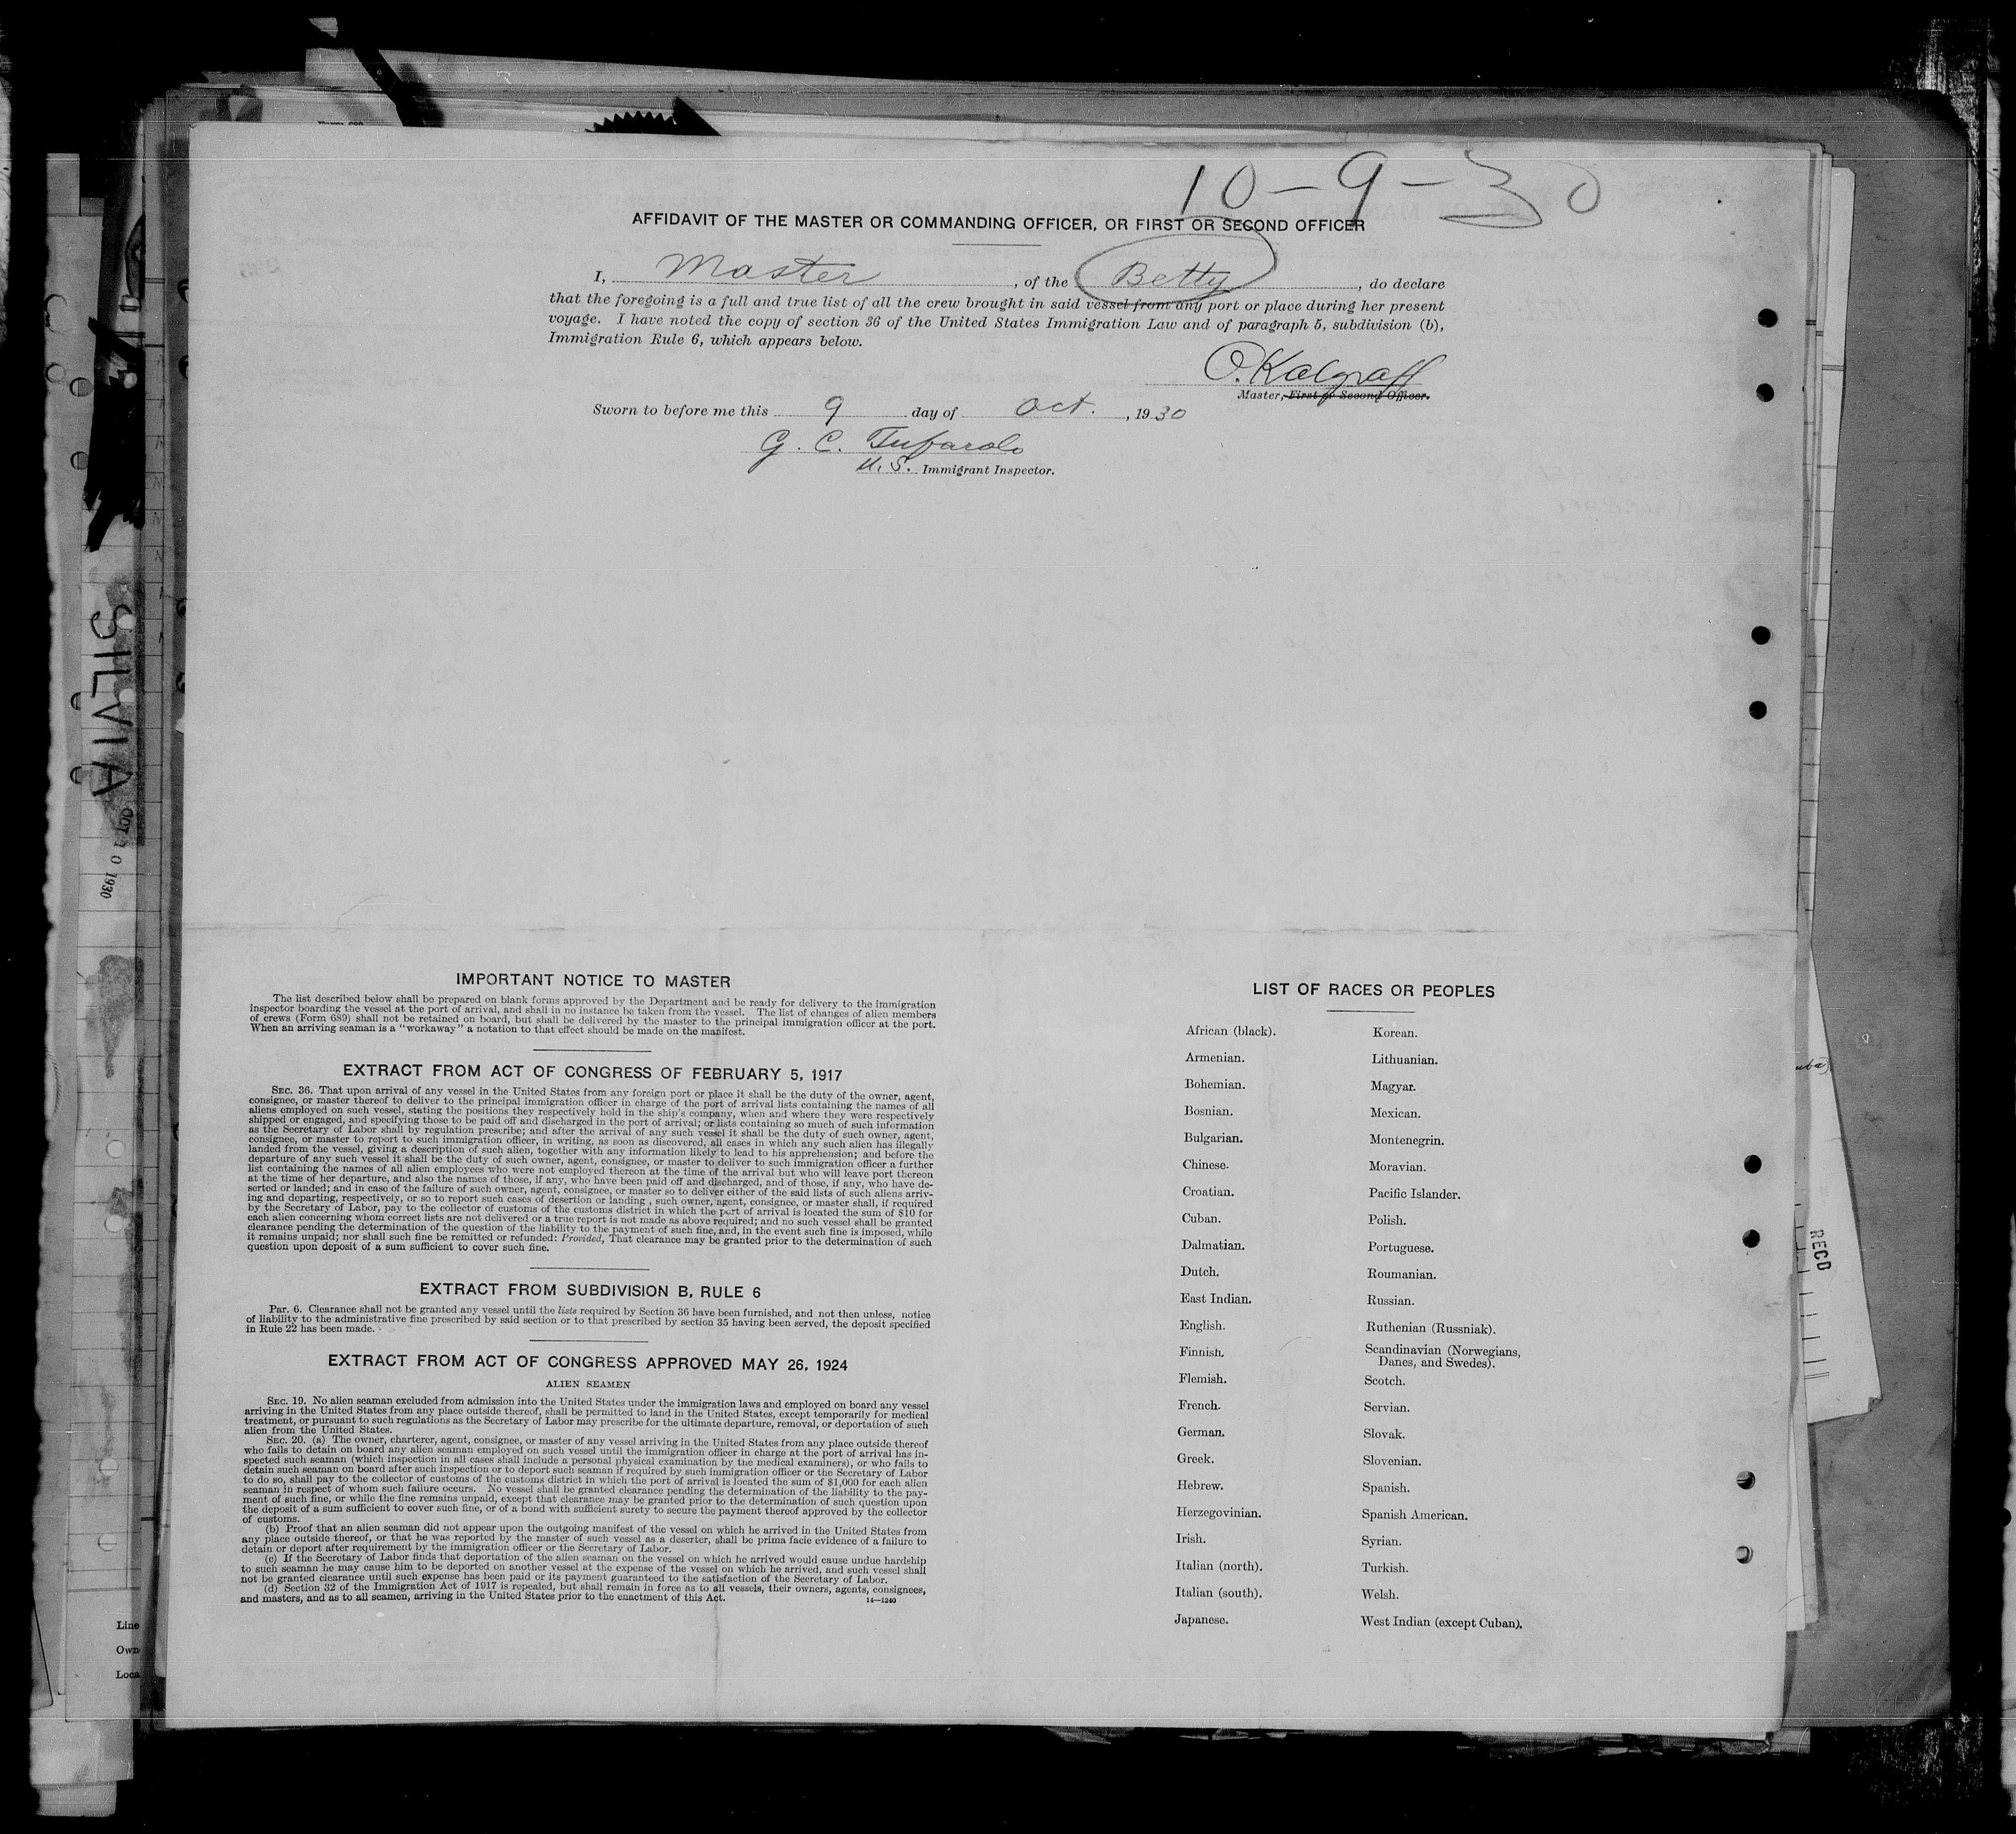 10-9-30
AFFIDAVIT OF THE MASTER OR COMMANDING OFFICER, OR FIRST OR SECOND OFFICER
I, Master, of the Betty, do declare
that the foregoing is a full and true list of all the crew brought in said vessel from any port or place during her present
voyage. I have noted the copy of section 36 of the United States Immigration Law and of paragraph 5, subdivision (b),
Immigration Rule 6, which appears below.
O. Kalgraff
Master, First or Second Officer.
Sworn to before me this 9 day of Oct., 1930
G. C. Tufarolo
U.S. Immigrant Inspector.
SILVIA
OCT 10 1930
IMPORTANT NOTICE TO MASTER
The list described below shall be prepared on blank forms approved by the Department and be ready for delivery to the immigration
inspector boarding the vessel at the port of arrival, and shall in no instance be taken from the vessel. The list of changes of alien members
of crews (Form 689) shall not be retained on board, but shall be delivered by the master to the principal immigration officer at the port.
When an arriving seaman is a "workaway" a notation to that effect should be made on the manifest.
EXTRACT FROM ACT OF CONGRESS OF FEBRUARY 5, 1917
SEC. 36. That upon arrival of any vessel in the United States from any foreign port or place it shall be the duty of the owner, agent,
consignee, or master thereof to deliver to the principal immigration officer in charge of the port of arrival lists containing the names of all
aliens employed on such vessel, stating the positions they respectively hold in the ship's company, when and where they were respectively
shipped or engaged, and specifying those to be paid off and discharged in the port of arrival; or lists containing so much of such information
as the Secretary of Labor shall by regulation prescribe; and after the arrival of any such vessel it shall be the duty of such owner, agent,
consignee, or master to report to such immigration officer, in writing, as soon as discovered, all cases in which any such alien has illegally
landed from the vessel, giving a description of such alien, together with any information likely to lead to his apprehension; and before the
departure of any such vessel it shall be the duty of such owner, agent, consignee, or master to deliver to such immigration officer a further
list containing the names of all alien employees who were not employed thereon at the time of the arrival but who will leave port thereon
at the time of her departure, and also the names of those, if any, who have been paid off and discharged, and of those, if any, who have de-
serted or landed; and in case of the failure of such owner, agent, consignee, or master so to deliver either of the said lists of such aliens arriv-
ing and departing, respectively, or so to report such cases of desertion or landing , such owner, agent, consignee, or master shall, if required
by the Secretary of Labor, pay to the collector of customs of the customs district in which the port of arrival is located the sum of $10 for
each alien concerning whom correct lists are not delivered or a true report is not made as above required; and no such vessel shall be granted
clearance pending the determination of the question of the liability to the payment of such fine, and, in the event such fine is imposed, while
it remains unpaid; nor shall such fine be remitted or refunded: Provided, That clearance may be granted prior to the determination of such
question upon deposit of a sum sufficient to cover such fine.
EXTRACT FROM SUBDIVISION B, RULE 6
Par. 6. Clearance shall not be granted any vessel until the lists required by Section 36 have been furnished, and not then unless, notice
of liability to the administrative fine prescribed by said section or to that prescribed by section 35 having been served, the deposit specified
in Rule 22 has been made.
EXTRACT FROM ACT OF CONGRESS APPROVED MAY 26, 1924
ALIEN SEAMEN
SEC. 19. No alien seaman excluded from admission into the United States under the immigration laws and employed on board any vessel
arriving in the United States from any place outside thereof, shall be permitted to land in the United States, except temporarily for medical
treatment, or pursuant to such regulations as the Secretary of Labor may prescribe for the ultimate departure, removal, or deportation of such
alien from the United States.
SEC. 20. (a) The owner, charterer, agent, consignee, or master of any vessel arriving in the United States from any place outside thereof
who fails to detain on board any alien seaman employed on such vessel until the immigration officer in charge at the port of arrival has in-
spected such seaman (which inspection in all cases shall include a personal physical examination by the medical examiners), or who fails to
detain such seaman on board after such inspection or to deport such seaman if required by such immigration officer or the Secretary of Labor
to do so, shall pay to the collector of customs of the customs district in which the port of arrival is located the sum of $1,000 for each alien
seaman in respect of whom such failure occurs. No vessel shall be granted clearance pending the determination of the liability to the pay-
ment of such fine, or while the fine remains unpaid, except that clearance may be granted prior to the determination of such question upon
the deposit of a sum sufficient to cover such fine, or of a bond with sufficient surety to secure the payment thereof approved by the collector
of customs.
(b) Proof that an alien seaman did not appear upon the outgoing manifest of the vessel on which he arrived in the United States from
any place outside thereof, or that he was reported by the master of such vessel as a deserter, shall be prima facie evidence of a failure to
detain or deport after requirement by the immigration officer or the Secretary of Labor.
(c) If the Secretary of Labor finds that deportation of the alien seaman on the vessel on which he arrived would cause undue hardship
to such seaman he may cause him to be deported on another vessel at the expense of the vessel on which he arrived, and such vessel shall
not be granted clearance until such expense has been paid or its payment guaranteed to the satisfaction of the Secretary of Labor.
(d) Section 32 of the Immigration Act of 1917 is repealed, but shall remain in force as to all vessels, their owners, agents, consignees,
and masters, and as to all seamen, arriving in the United States prior to the enactment of this Act.
14—1240
LIST OF RACES OR PEOPLES
African (black).
Armenian.
Bohemian.
Bosnian.
Bulgarian.
Chinese.
Croatian.
Cuban.
Dalmatian.
Dutch.
East Indian.
English.
Finnish.
Flemish.
French.
German.
Greek.
Hebrew.
Herzegovinian.
Irish.
Italian (north).
Italian (south).
Japanese.
Korean.
Lithuanian.
Magyar.
Mexican.
Montenegrin.
Moravian.
Pacific Islander.
Polish.
Portuguese.
Roumanian.
Russian.
Ruthenian (Russniak).
Scandinavian (Norwegians,
Danes, and Swedes).
Scotch.
Servian.
Slovak.
Slovenian.
Spanish.
Spanish American.
Syrian.
Turkish.
Welsh.
West Indian (except Cuban).
RECD
Line
Own
Loca